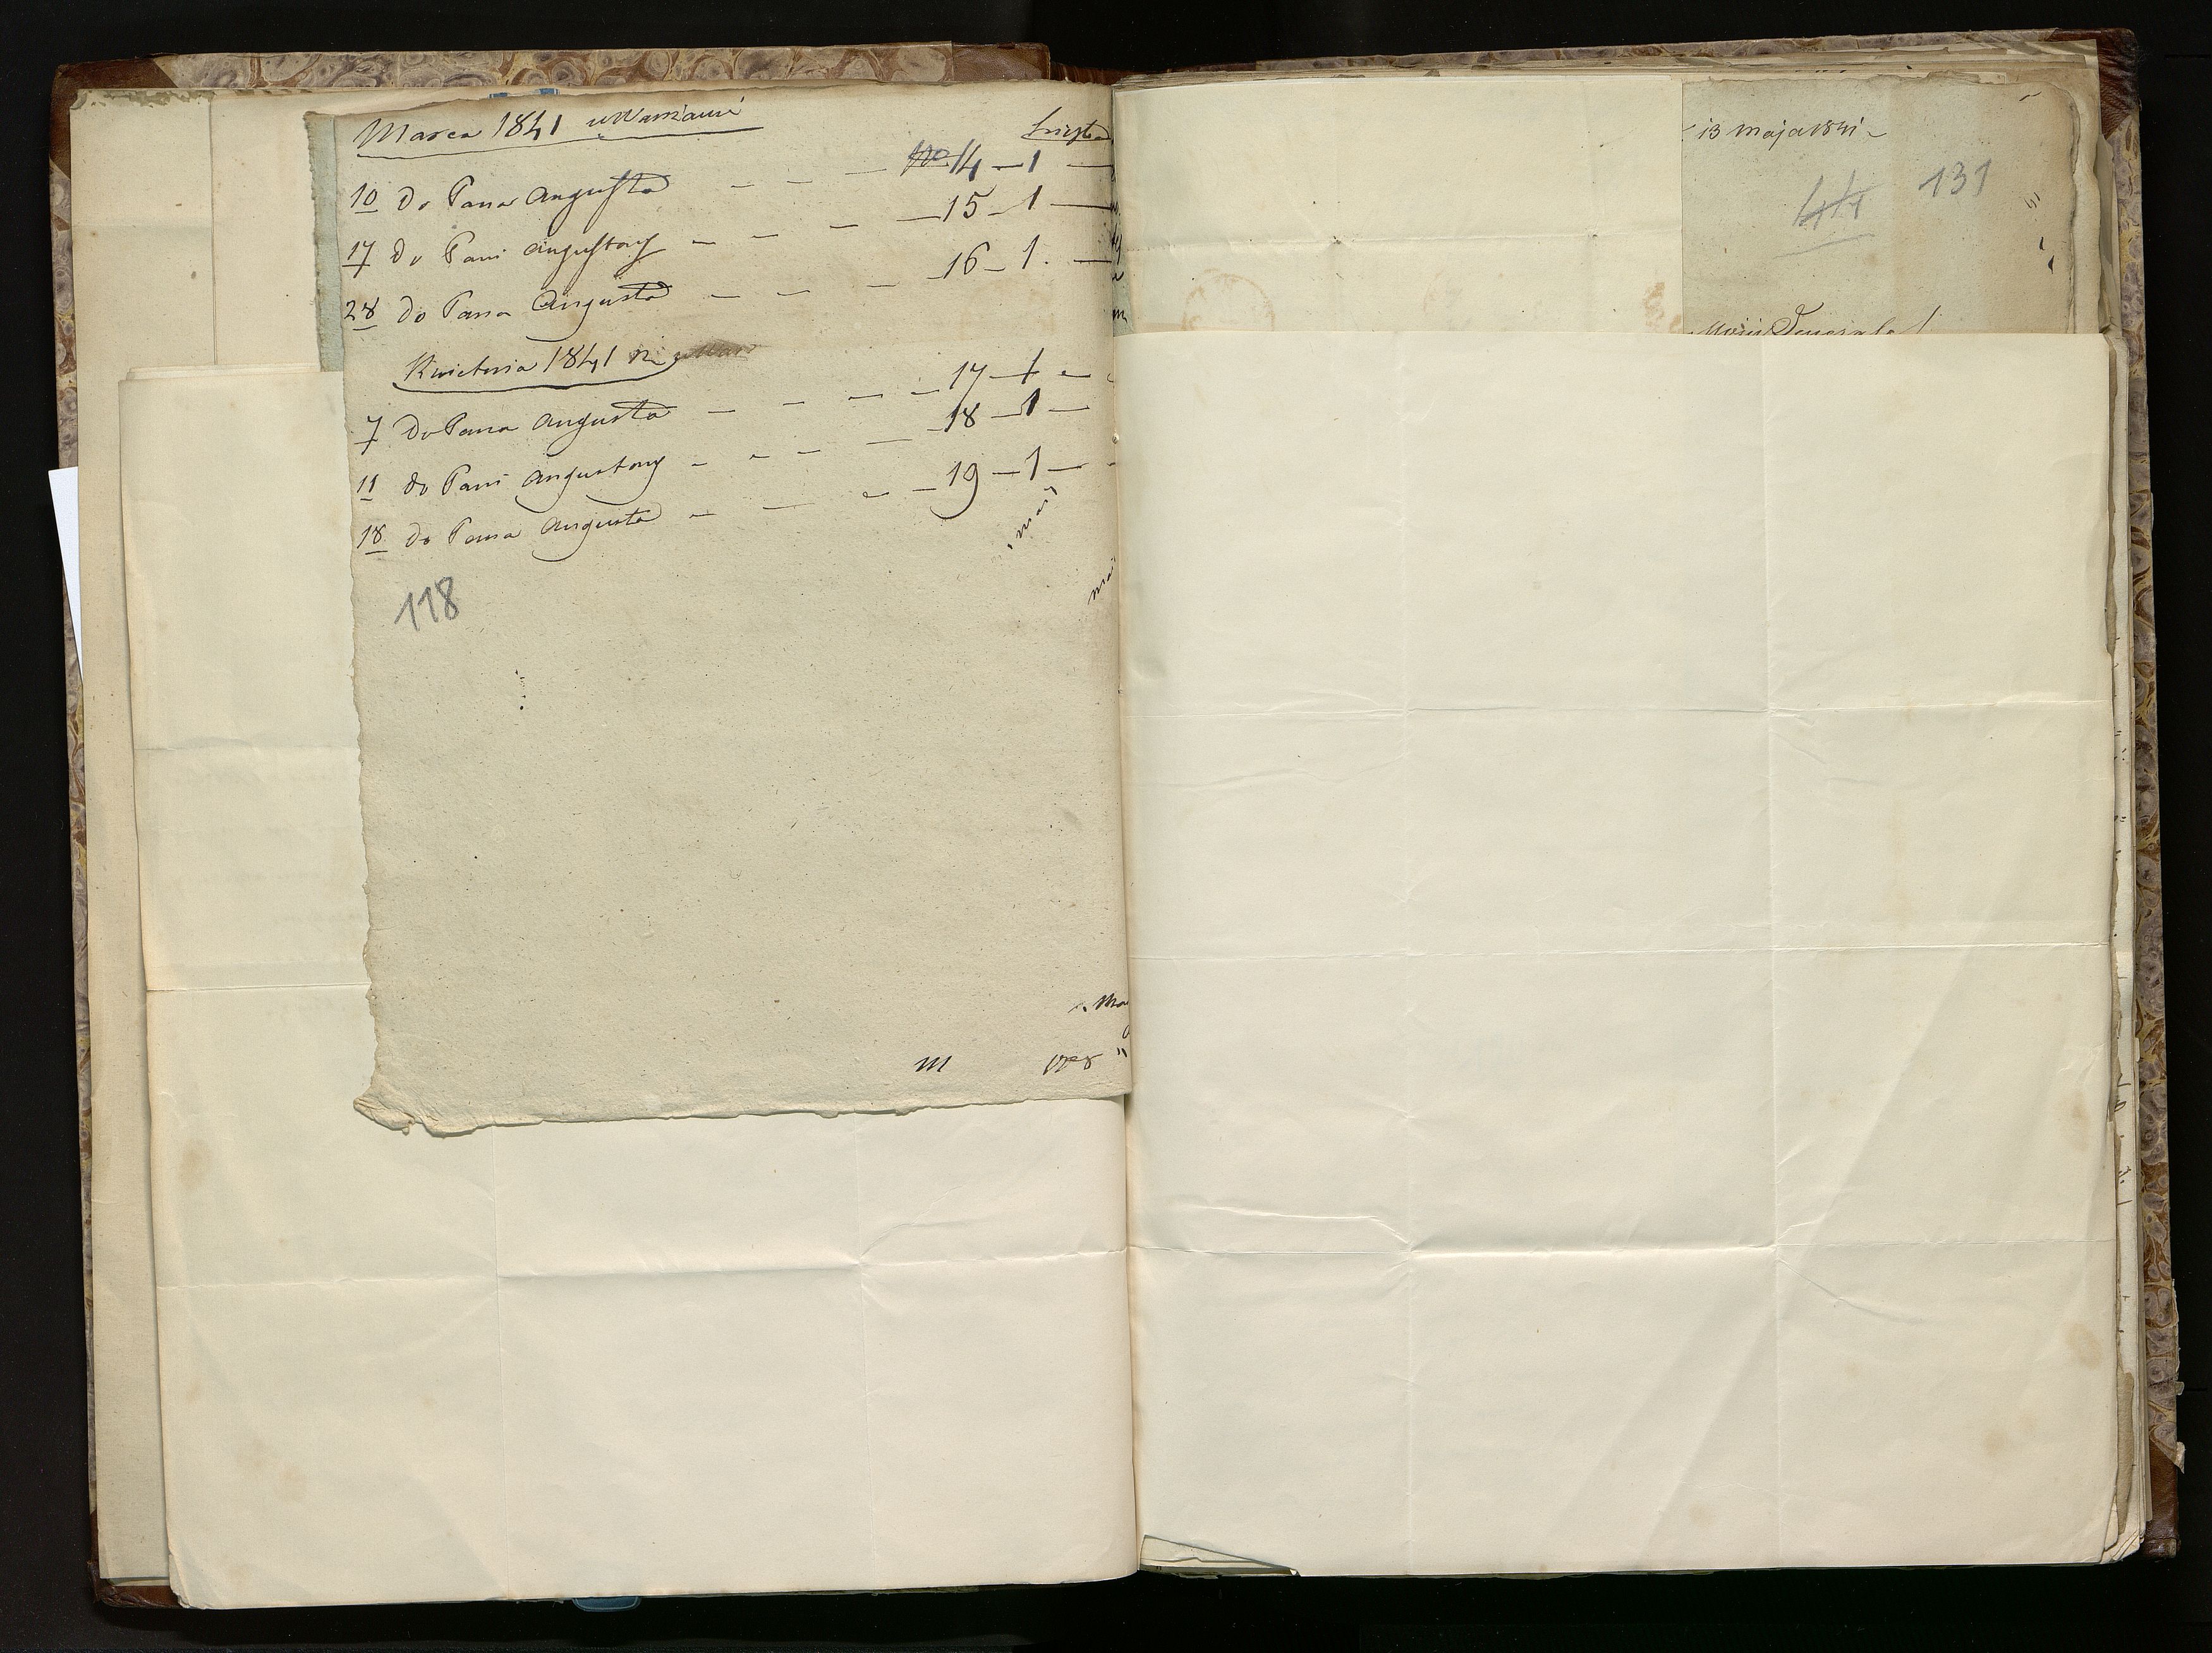 Marca 1841 w Warszawie
14 – 1 –
10 Do Pana Augusta – – –
15 – 1 –
17 Do Pani Augustowy – – –
16 – 1. –
28 Do Pana Augusta – – –
Kwietnia 1841
17 – 1 –
7 Do Pana Augusta – – – – –
18 – 1 –
11 do Pani Augustowy – – – –
19 – 1 –
18 Do Pana Augusta – – – –
118
13 Maja 1841
44 131